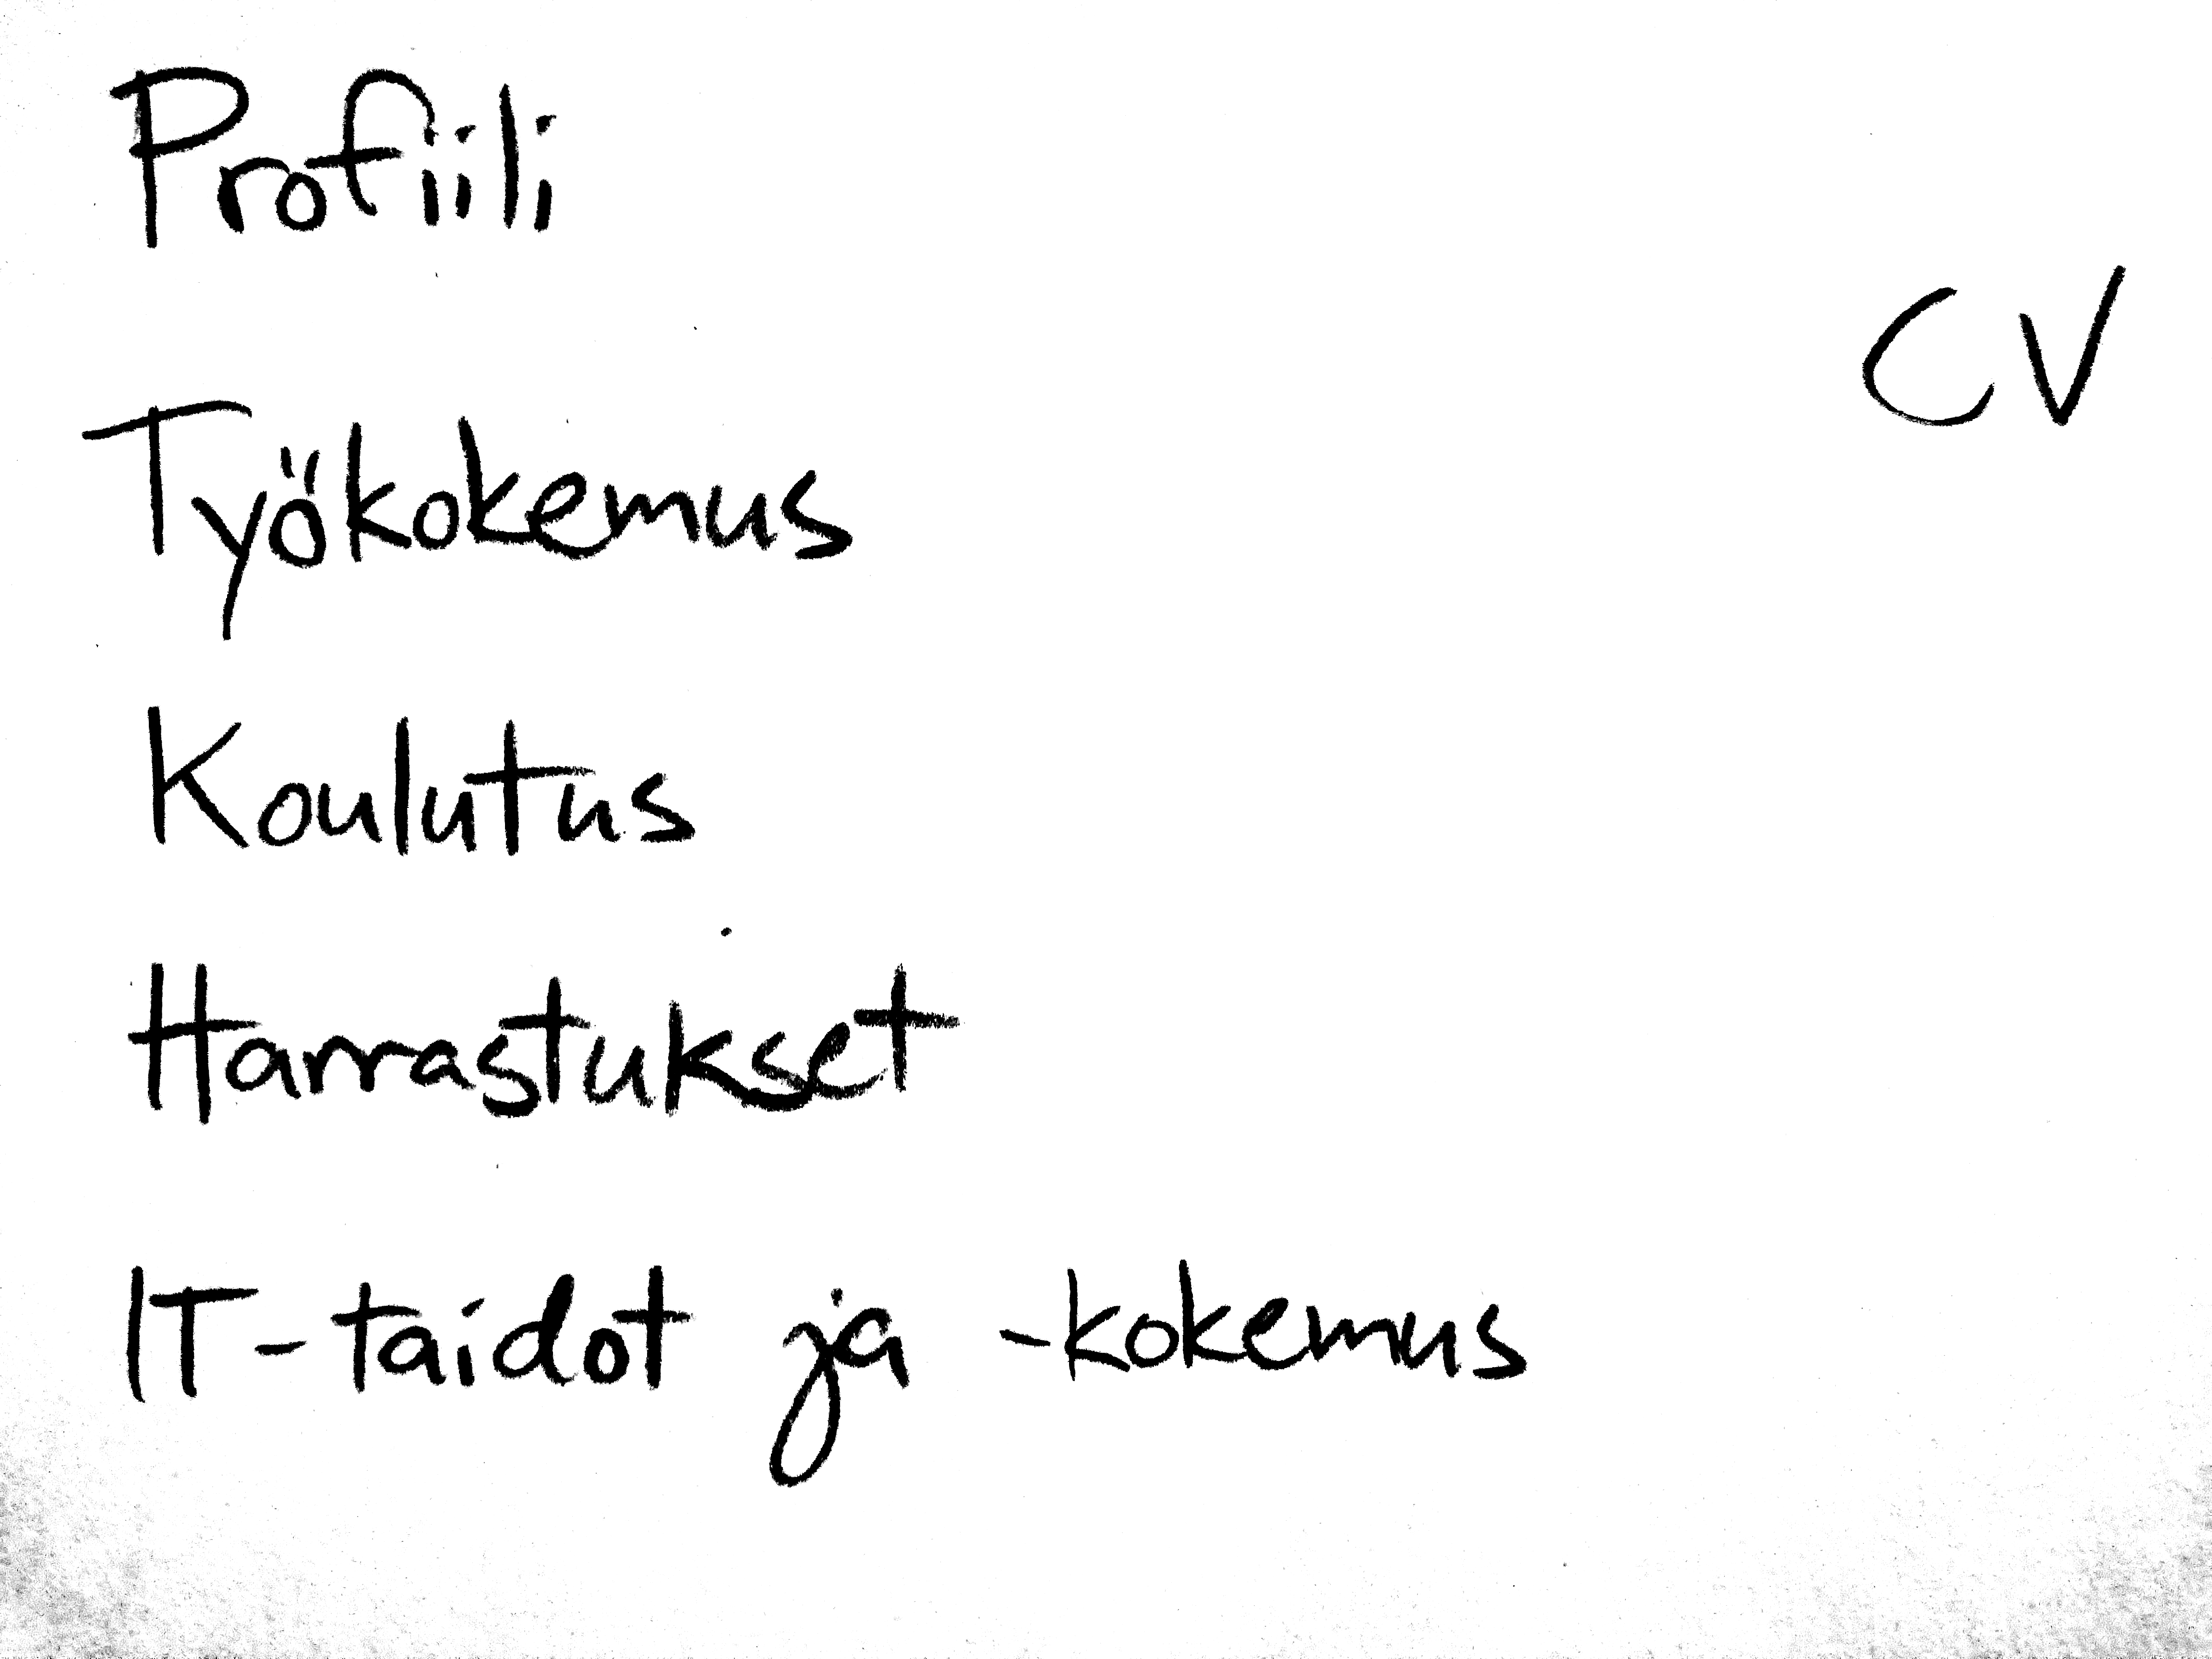 Profiili
CV
Työkokemus
Koulutus
Harrastukset
IT-taidot ja -kokemus